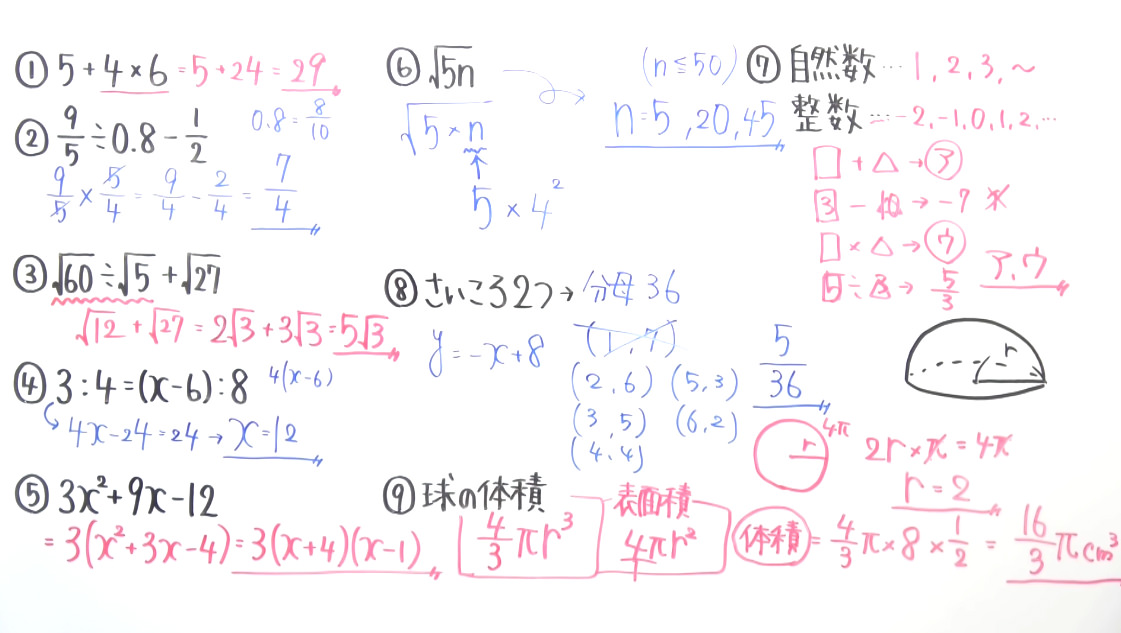 ① 5+4×6 =5+24=29
② 9/5÷0.8-1/2 0.8=8/10
9/5×5/4=9/4-2/4=7/4
③ √60÷√5+√27
√12+√27=2√3+3√3=5√3
④ 3:4=(x-6):8 4(x-6)
4x-24=24→x=12
⑤ 3x²+9x-12
=3(x²+3x-4)=3(x+4)(x-1)
⑥ √5n (n≦50)
√5×n n=5,20,45
5×4²
⑦ 自然数…1,2,3,~
整数…-2,-1,0,1,2,…
□+△→ア
3-10→-7 ×
□×△→ウ
5÷3→5/3 ア,ウ
⑧ さいころ2つ→分母36
y=-x+8 (1,7)
(2,6) (5,3) 5/36
(3,5) (6,2)
(4,4)
⑨ 球の体積 4/3πr³
表面積 4πr²
r
r 4π 2r×π=4π
r=2
体積=4/3π×8×1/2=16/3πcm³